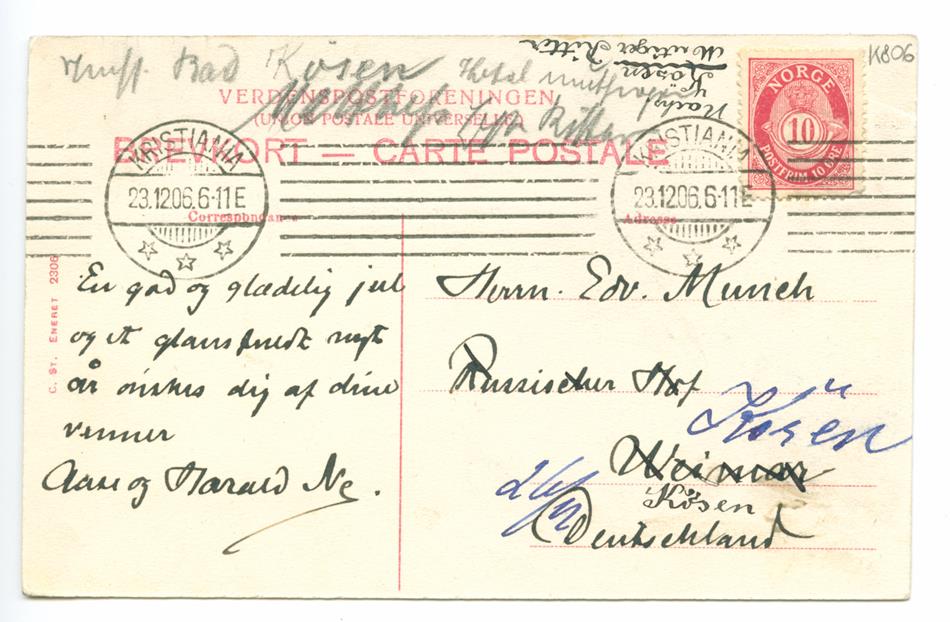 Bad Kösen
Hotel mutiger
Ritter
Nachf
Kösen
Mutiger Ritter
K806
VERDENSPOSTFORENINGEN
(UNION POSTALE UNIVERSELLE)
BREVKORT — CARTE POSTALE
NORGE
10
POSTFRIM. 10 ØRE
KRISTIANIA
23.12.06.6-11E
KRISTIANIA
23.12.06.6-11E
Correspondance
Adresse
C. ST. ENERET 2306
En god og glædelig jul
og et glansfuldt nyt
år ønskes dig af dine
venner
Aase og Harald Nø.
Herrn. Edv. Munch
Russischer Hof
Kösen
Weimar
Kösen
26/12
Deutschland